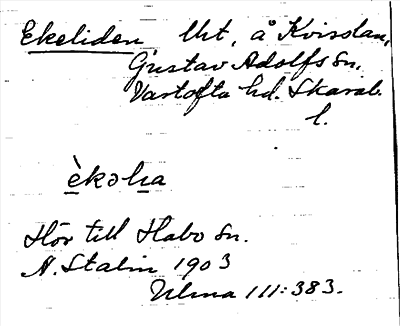 Ekeliden Uht, å Kvisslan,
Gustav Adolfs sn.
Vartofta hd. Skarab.
l.
èkəlɩa
Hör till Habo sn.
N. Stalin 1903
Ulma 111:383.